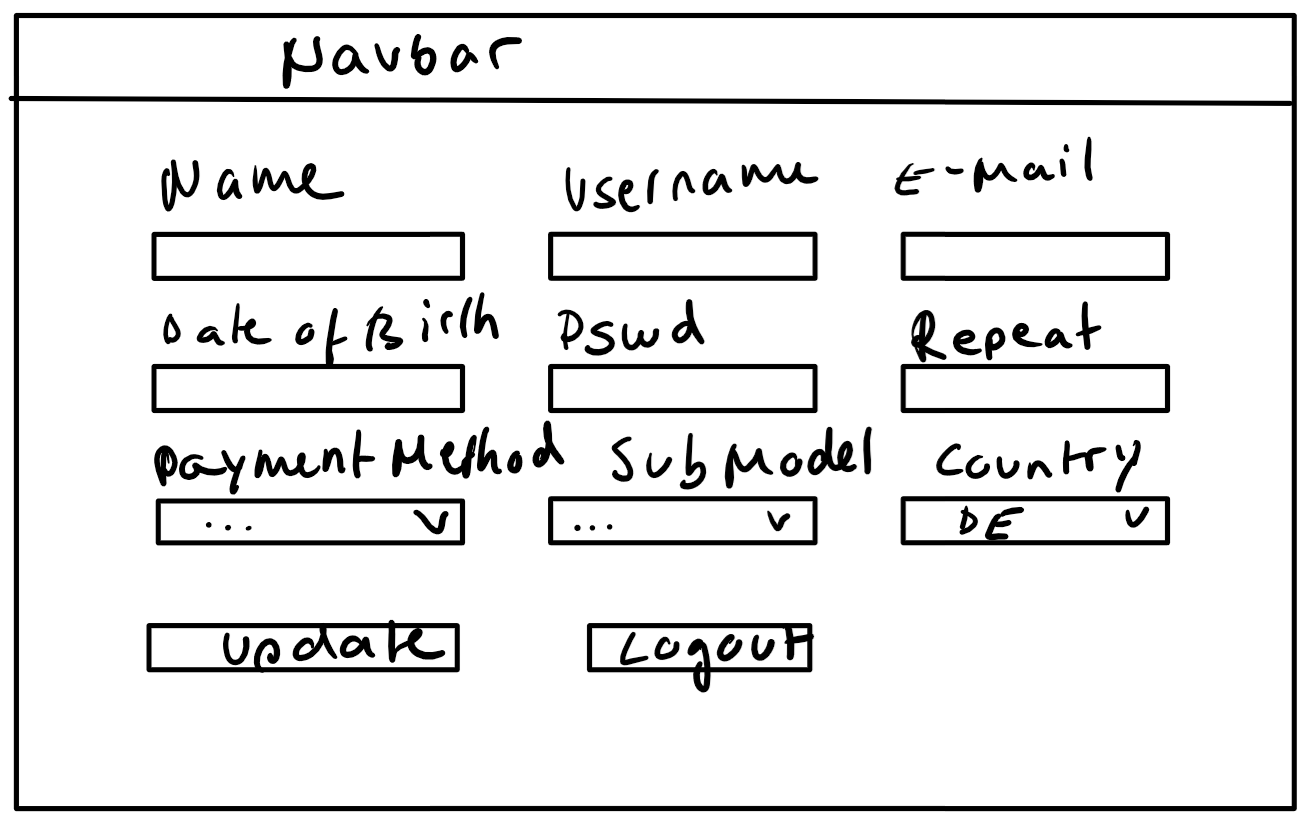 Navbar
Name Username E-Mail
Date of Birth Pswd Repeat
Payment Method Sub Model Country
... v ... v DE v
Update Logout